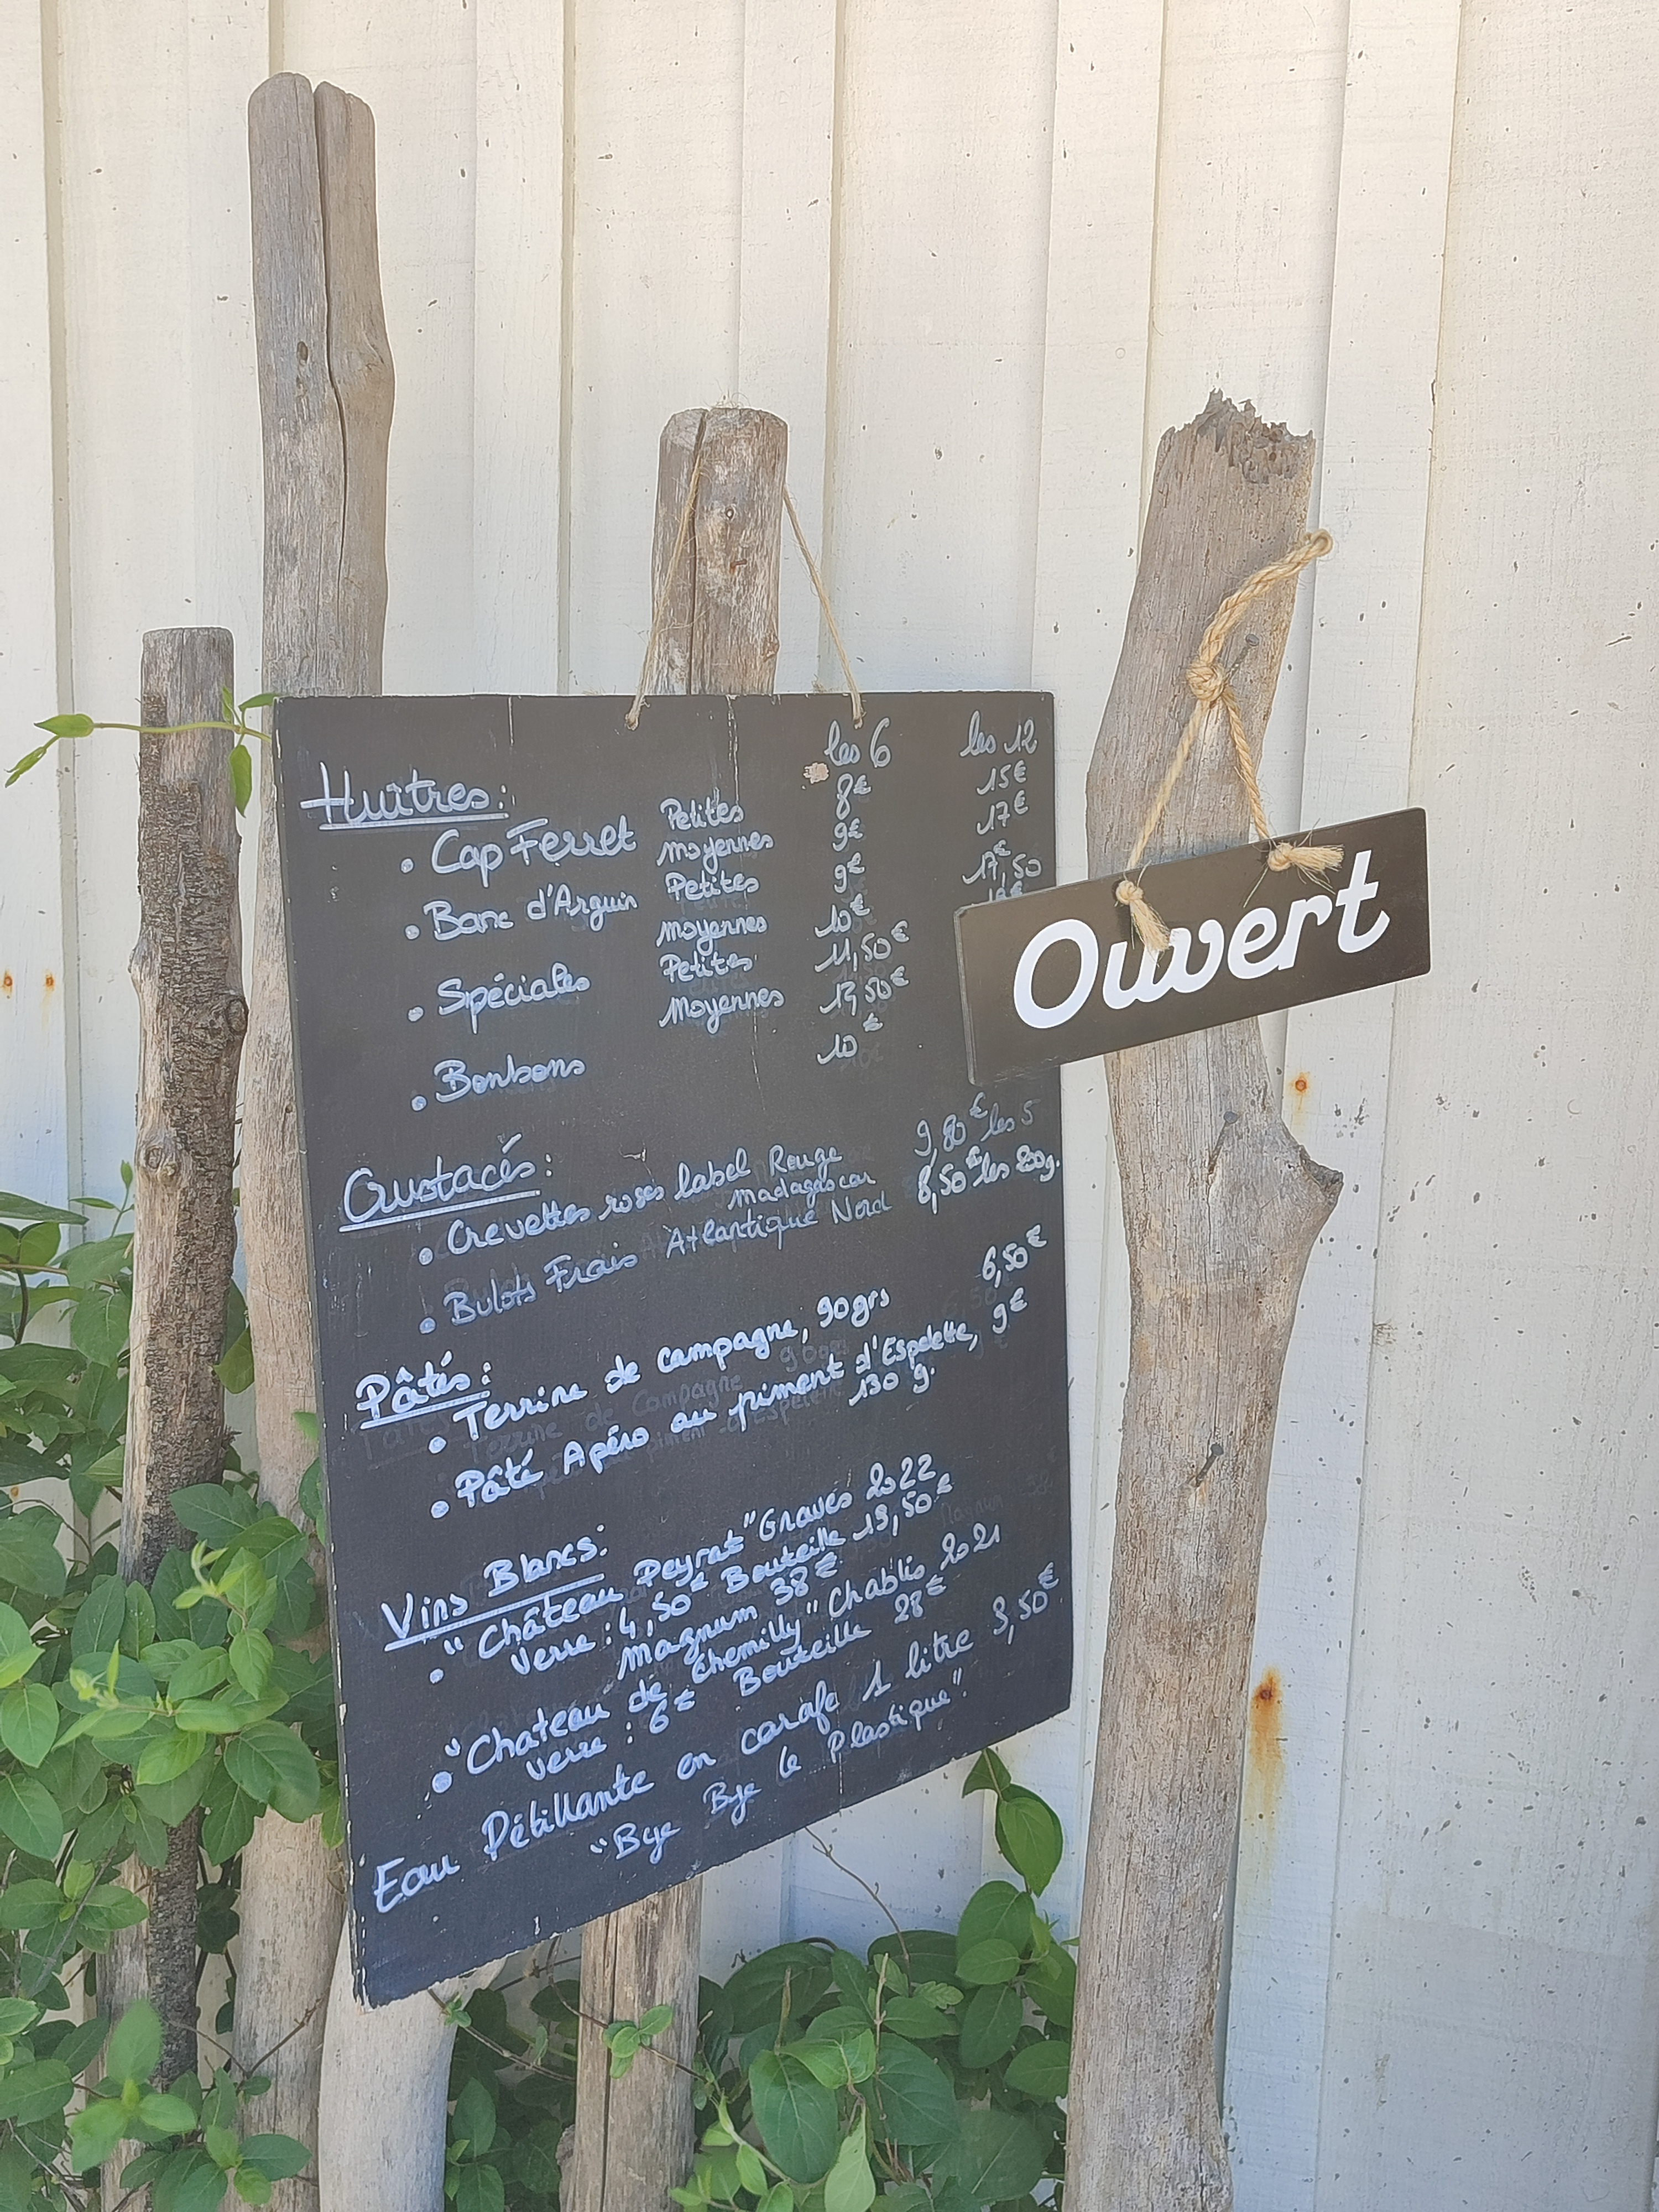 les 6 les 12
Huîtres:
• Cap Ferret Petites 8€ 15€
moyennes 9€ 17€
• Banc d'Arguin Petites 9€ 17€,50
moyennes 10€
• Spéciales Petites 11,50€
Moyennes 50€
• Bonbons 10€
Crustacés:
• Crevettes roses label Rouge 9,80€ les 5
Madagascar
• Bulots Frais Atlantique Nord 8,50€ les g.
Pâtés:
• Terrine de campagne, 90grs 6,50€
• Pâté Apéro au piment d'Espelette, 9€
130 g.
Vins Blancs:
• "Château Peyrat" Graves 2022
Verre : 4,50€ Bouteille 19,50€
Magnum 38€
• "Chateau de Chemilly" Chablis 2021
Verre : 6€ Bouteille 28€
Eau Pétillante en carafe 1 litre 3,50€
"Bye Bye le Plastique".
Ouvert